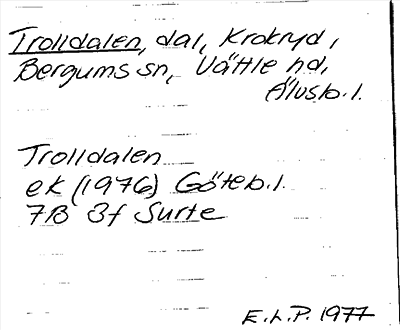 Trolldalen, dal, Krokryd,
Bergums sn, Vättle hd,
Älvsb.l.
Trolldalen
ek (1976) Göteb.l.
7B 3f Surte
E.L.P. 1977